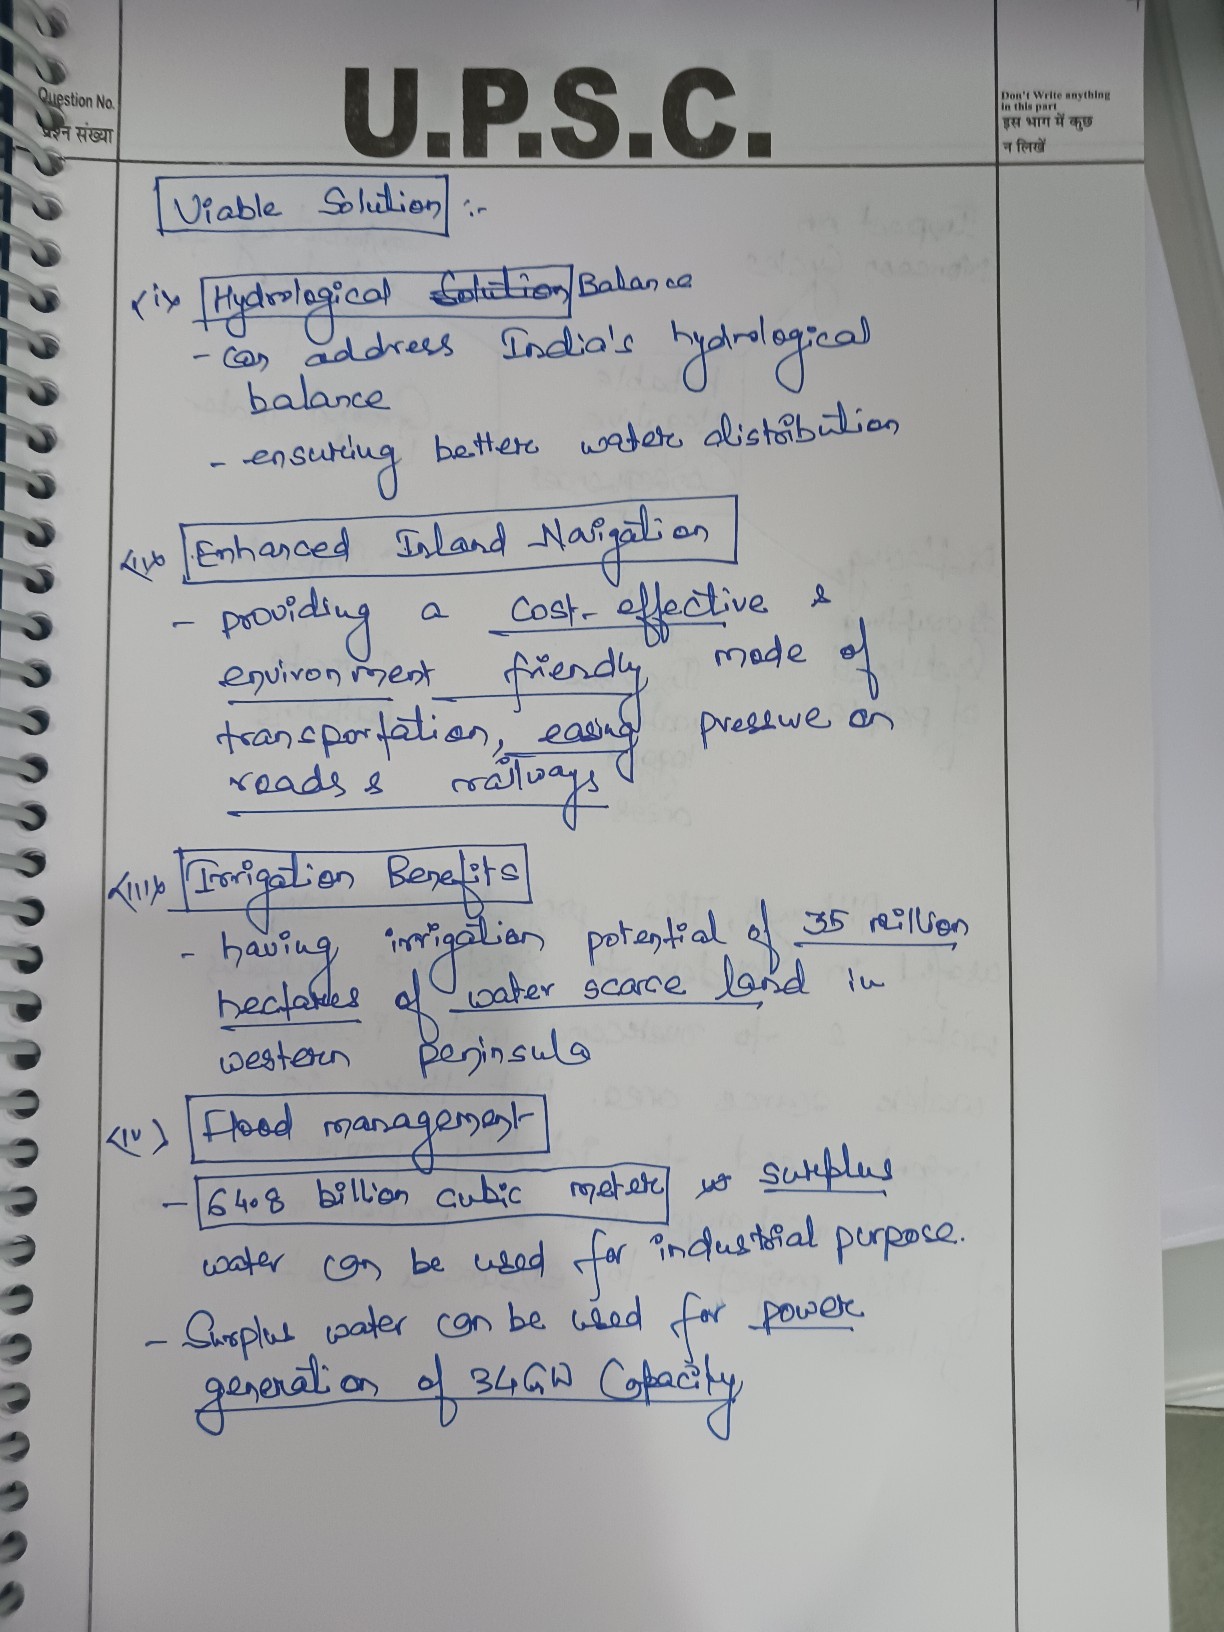 Question No.
प्रश्न संख्या
U.P.S.C.
Don't Write anything
in this part
इस भाग में कुछ
न लिखें
Viable Solution :-
<i> Hydrological Solution Balance
- Can address India's hydrological
balance
- ensuring better water distribution
<ii> Enhanced Inland Navigation
- providing a cost-effective &
environment friendly mode of
transportation, easing pressure on
roads & railways
<iii> Irrigation Benefits
- having irrigation potential of 35 million
hectares of water scarce land in
western Peninsula
<iv> Flood management
- 64.8 billion cubic meter surplus
water can be used for industrial purpose.
- Surplus water can be used for power
generation of 34GW Capacity